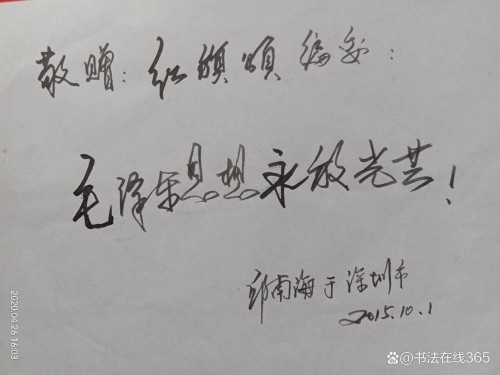 敬赠：红旗颂编委：
毛泽东思想永放光芒！
邹南海于深圳市
2015.10.1
2020.04.26 16:03
@书法在线365